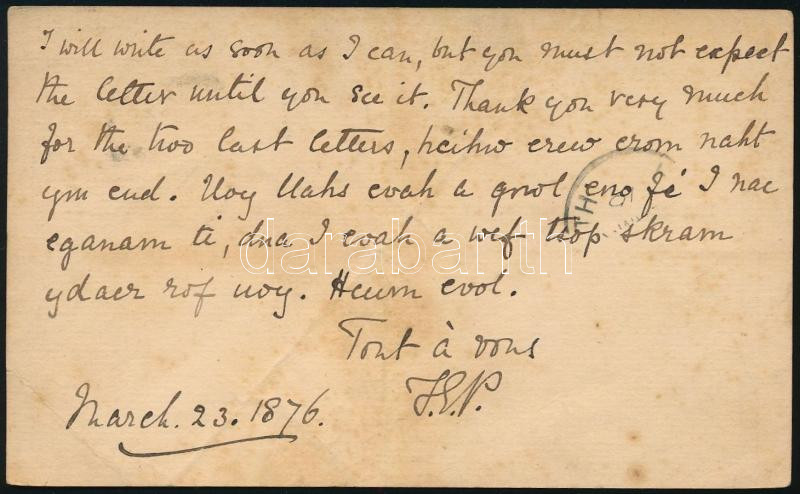 I will write as soon as I can, but you must not expect
the letter until you see it. Thank you very much
for the two last letters, hcihw erew erom naht
ym eud. Uoy llahs evah a gnol eno fi I nac
eganam ti, dna I evah a wef tsop skram
ydaer rof uoy. Hcum evol.
Tout à vous
F.E.P.
March. 23. 1876.
darabanth